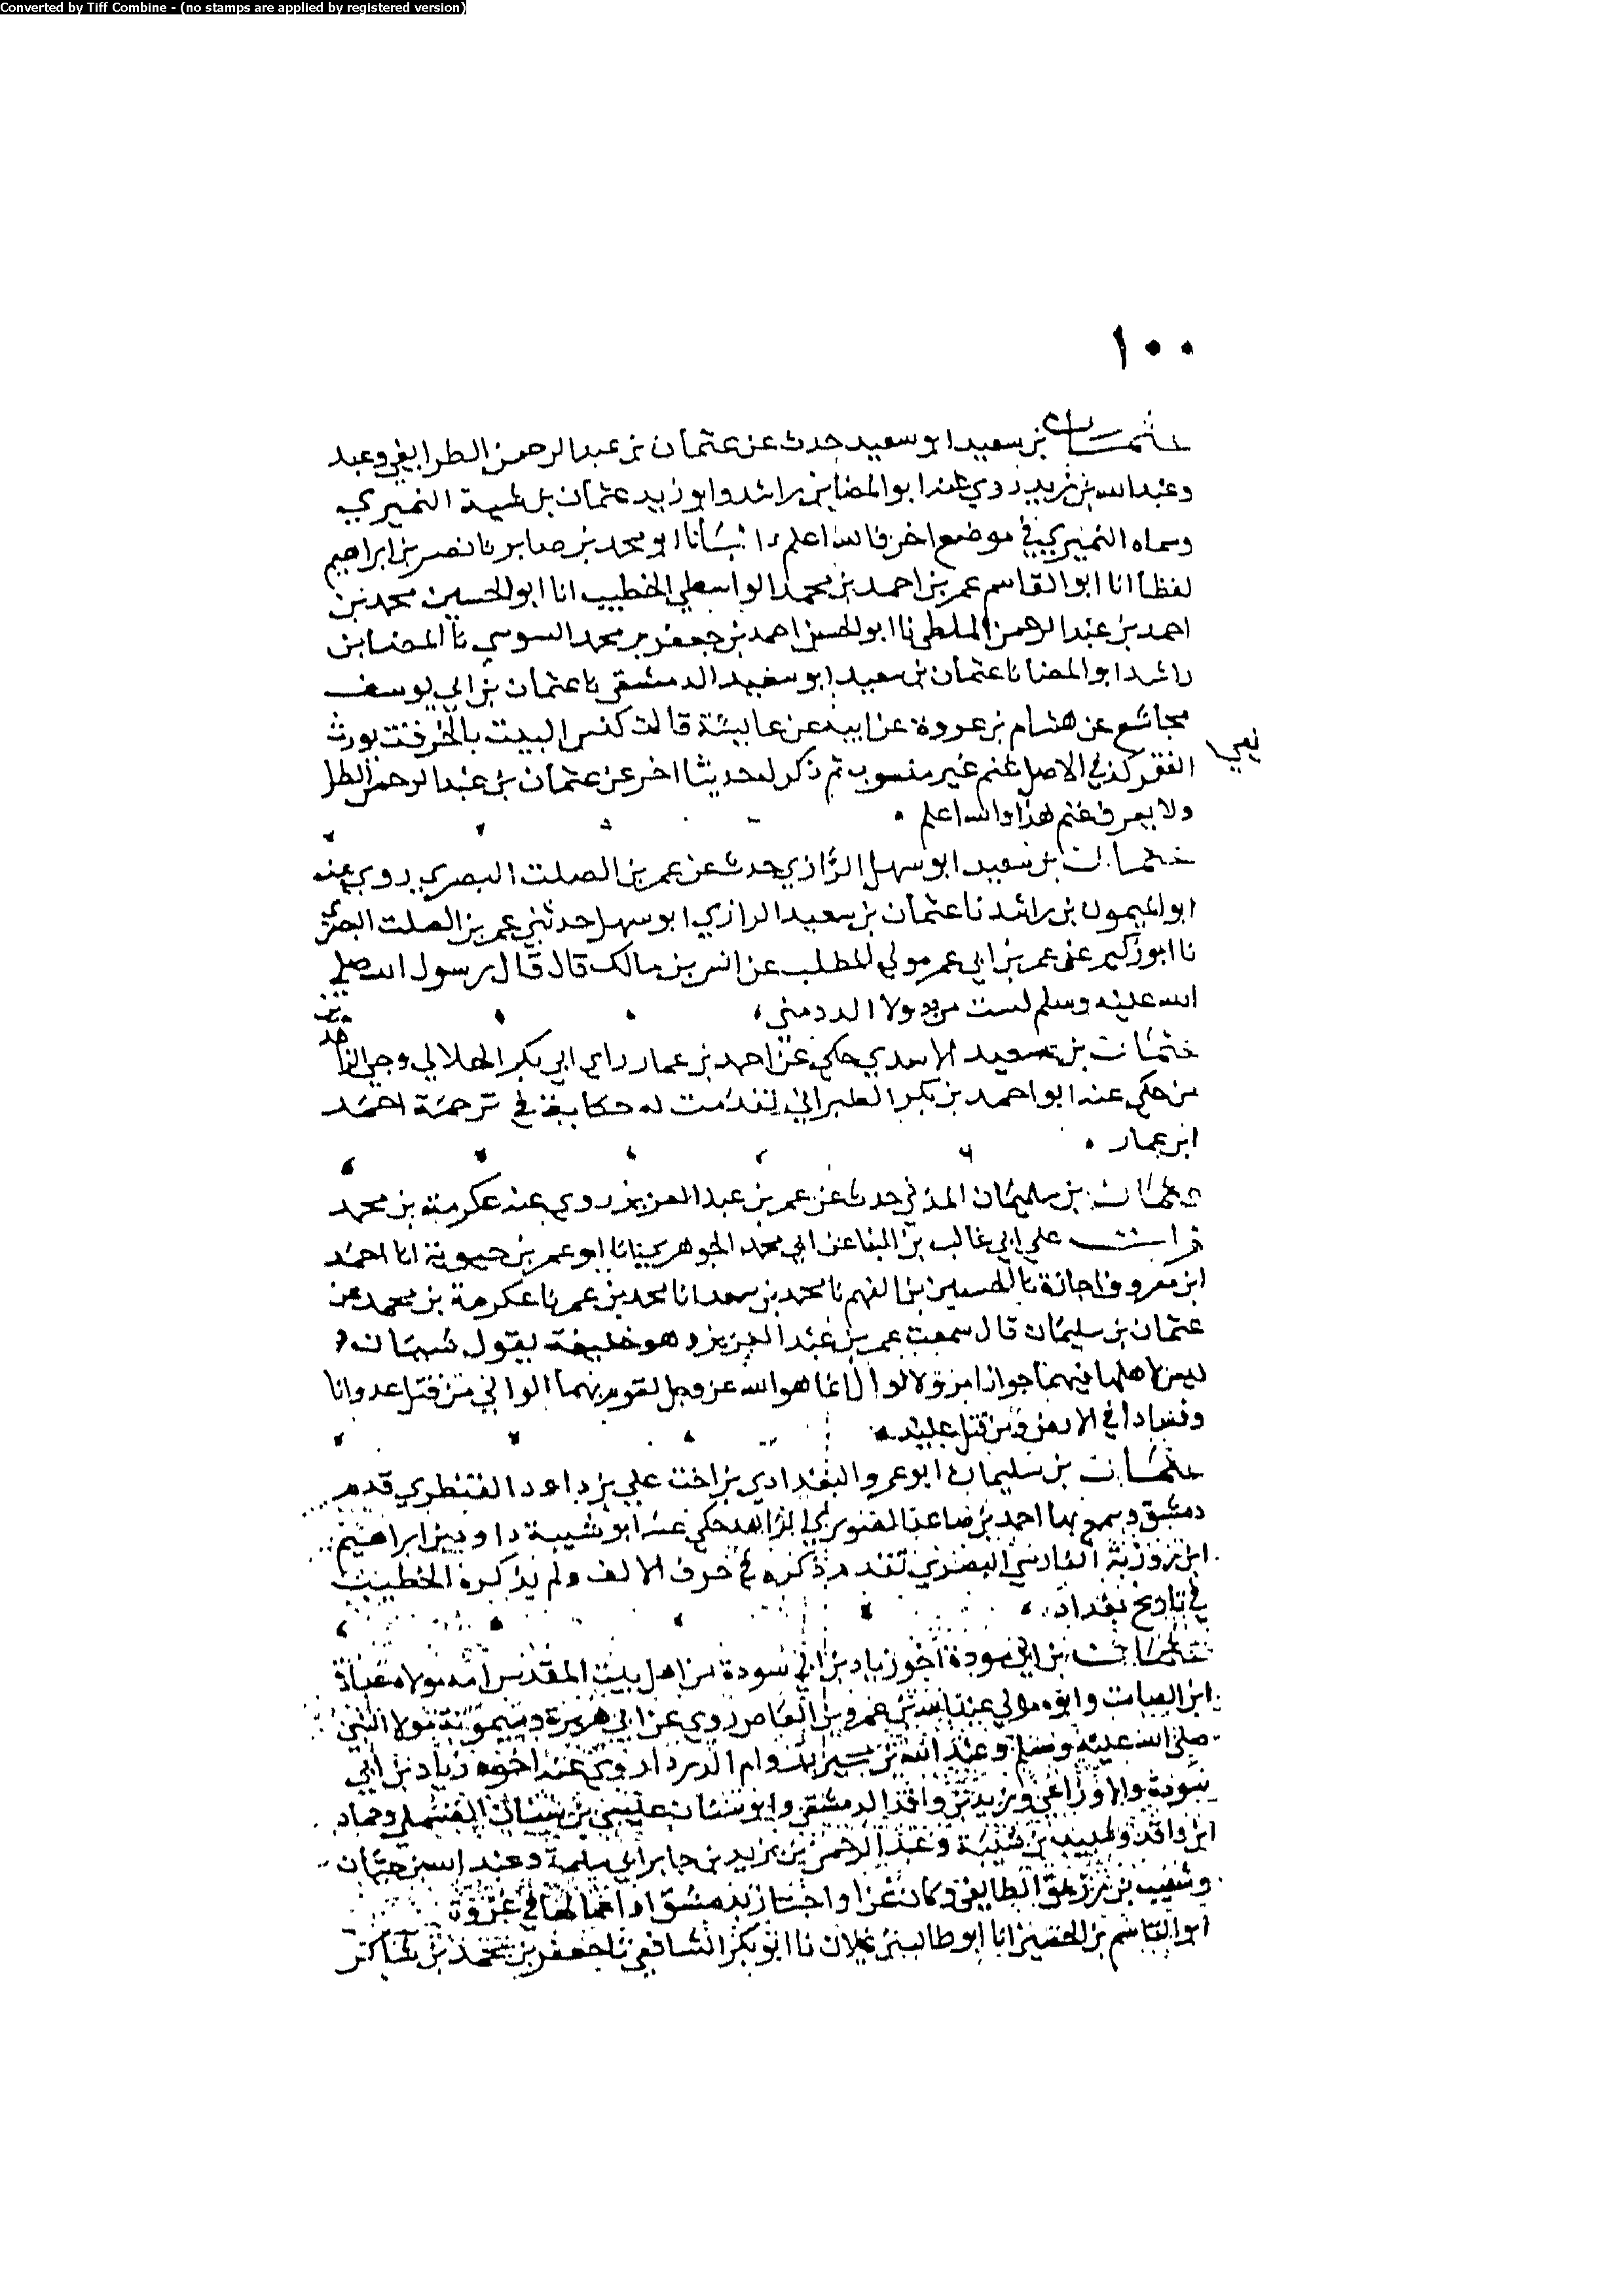 Converted by Tiff Combine - (no stamps are applied by registered version)
١٠٠
عثمان بن سعيد ابو سعيد حدث عن عثمان بن عبد الرحمن الطرايفي وعبد
وعبد الله بن يزيد روي عنه ابو المضا بن راشد وابو زيد عثمان بن شبة النميري
وسماه النميري في موضع اخر فالله اعلم انبانا ابو محمد بن صابر نا نصر بن ابراهيم
لفظا انا ابو القاسم عمر بن احمد بن محمد الواسطي الخطيب انا ابو الحسين محمد بن
احمد بن عبد الرحمن الملطي نا ابو الحسن احمد بن جعفر بن محمد السوسي نا المضا بن
راشد ابو المضا نا عثمان بن سعيد ابو سعيد الدمشقي نا عثمان بن ابي يوسف
مجاشع عن هشام بن عروة عن ابيه عن عايشة قالت كنس البيت بالخرقة يورث
الفقر كذي الاصل غنم غير منسوب ثم ذكر له حديثا اخر عن عثمان بن عبد الرحمن الطر
يفي
ولا يعرف غنم هذا والله اعلم
عثمان بن سعيد ابو سهل الرازي حدث عن عمر بن الصلت البصري روي عنه
ابو الميمون بن راشد نا عثمان بن سعيد الرازي ابو سهل حدثني عمر بن الصلت البصري
نا ابو زكير عن عمر بن ابي عمر مولي المطلب عن انس بن مالك قال قال رسول الله صلي
الله عليه وسلم لست من دد ولا الدد مني
عثمان بن سعيد الاسدي حكي عن احمد بن عمار راي ابي بكر الهلالي وحي
من حكي عنه ابو احمد بن بكر الطبراني تقدمت له حكاية في ترجمة احمد
ابن عمار
عثمان بن سليمان المدني حدث عن عمر بن عبد العزيز روي عنه عكرمة بن محمد
قرات علي ابي غالب بن البنا عن ابي محمد الجوهري انا ابو عمر بن حيوية انا احمد
ابن معروف اجازة نا الحسين بن الفهم نا محمد بن سعد انا محمد بن عمر نا عكرمة بن محمد عن
عثمان بن سليمان قال سمعت عمر بن عبد العزيز وهو خليفة يقول شيان
ليس لاهلها فيهما جواز امر ولا لوال انما هو الله عز وجل يقوم بهما الوالي من قتل عدوانا
وفسادا في الارض ومن قتل غليه
عثمان بن سليمان ابو عمرو البغدادي بن اخت علي بن داود القنطري قدم
دمشق وسمع بها احمد بن صاعد الصوري الزاهد حكي عنه ابو شيبة داود بن ابراهيم
ابن روزبة الفارسي البصري تقدم ذكره في حرف الالف ولم يذكره الخطيب
في تاريخ بغداد
عثمان بن ابي سودة اخو زياد بن ابي سودة من اهل بيت المقدس امه مولاة عبادة
ابن الصامت وابوه مولي عبد الله بن عمرو بن العاص روي عن ابي هريرة وميمونة مولاة النبي
صلي الله عليه وسلم وعبد الله بن بسر وام الدردا روي عنه اخوه زياد بن ابي
سودة والاوزاعي وزيد بن واقد الدمشقي وابو سنان عيسي بن سنان القسملي وحماد
ابن واقد وشبيب بن شيبة وعبد الرحمن بن يزيد بن جابر ابي سلمة وعبد الله بن حيان
وشعيب بن رزيق الطايفي وكان غزا واجتاز بدمشق او اعمالها في غزوة
ابو القاسم بن الحصين انا ابو طالب بن غيلان نا ابو بكر الشافعي نا جعفر بن محمد بن شاكر